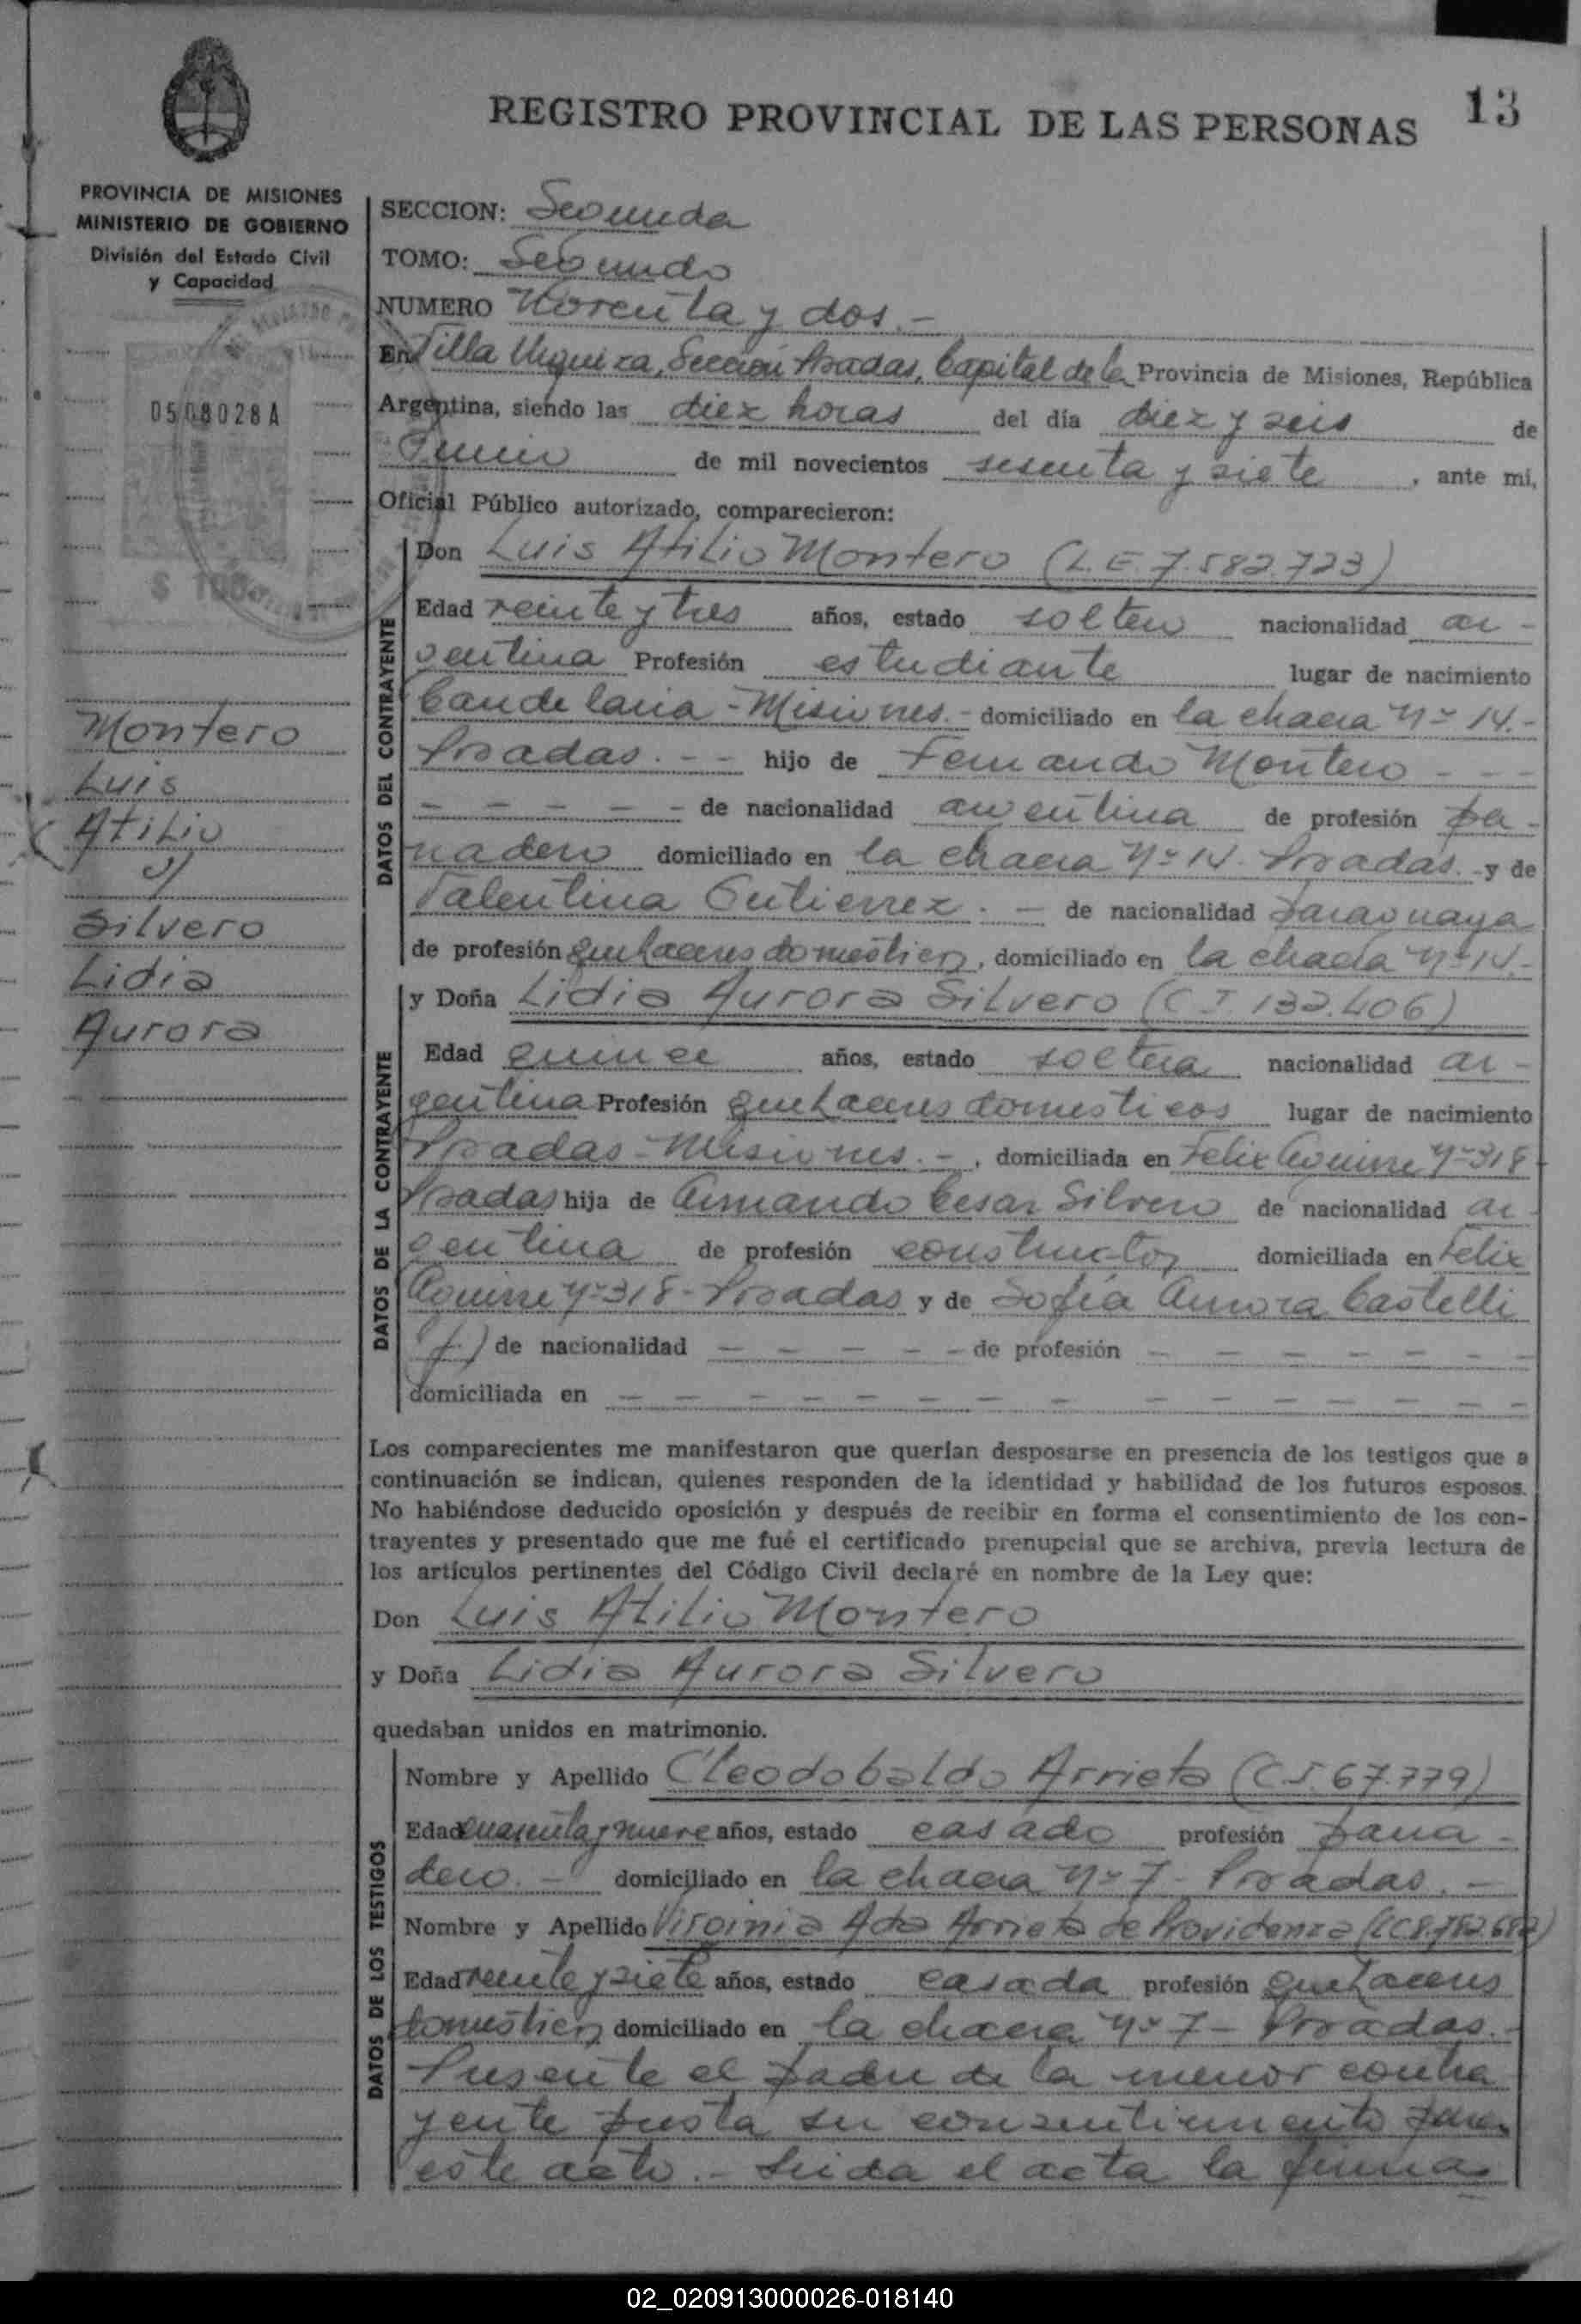 REGISTRO PROVINCIAL DE LAS PERSONAS 13
PROVINCIA DE MISIONES
MINISTERIO DE GOBIERNO
División del Estado Civil
y Capacidad
0508028A
$ 100
Montero
Luis
Atilio
y
Silvero
Lidia
Aurora
SECCION: Segunda
TOMO: Segundo
NUMERO Noventa y dos.-
En Villa Urquiza, Sección Posadas, Capital de la Provincia de Misiones, República
Argentina, siendo las diez horas del día diez y seis de
Junio de mil novecientos sesenta y siete, ante mi,
Oficial Público autorizado, comparecieron:
DATOS DEL CONTRAYENTE
Don Luis Atilio Montero (L.E. 7.582.723)
Edad veinte y tres años, estado soltero nacionalidad ar-
gentina Profesión estudiante lugar de nacimiento
Candelaria - Misiones.- domiciliado en la chacra Nº 14.-
Posadas. - - hijo de Fernando Montero - - -
- - - - - - de nacionalidad argentina de profesión pa-
nadero domiciliado en la chacra Nº 14. Posadas. - y de
Valentina Gutierrez. - de nacionalidad paraguaya
de profesión quehaceres domésticos, domiciliado en la chacra Nº 14.-
DATOS DE LA CONTRAYENTE
y Doña Lidia Aurora Silvero (C I. 132.406)
Edad quince años, estado soltera nacionalidad ar-
gentina Profesión quehaceres domesticos lugar de nacimiento
Posadas - Misiones. -, domiciliada en Felix Aguirre Nº 318
Posadas hija de Armando Cesar Silvero de nacionalidad ar
gentina de profesión constructor domiciliada en Felix
Aguirre Nº 318 - Posadas y de Sofía Aurora Castelli
(f.) de nacionalidad - - - - - de profesión - - - - - - -
domiciliada en - - - - - - - - - - - - -
Los comparecientes me manifestaron que querían desposarse en presencia de los testigos que a
continuación se indican, quienes responden de la identidad y habilidad de los futuros esposos.
No habiéndose deducido oposición y después de recibir en forma el consentimiento de los con-
trayentes y presentado que me fué el certificado prenupcial que se archiva, previa lectura de
los artículos pertinentes del Código Civil declaré en nombre de la Ley que:
Don Luis Atilio Montero
y Doña Lidia Aurora Silvero
quedaban unidos en matrimonio.
DATOS DE LOS TESTIGOS
Nombre y Apellido Cleodobaldo Arrieta (C I. 67.779)
Edad cuarenta y nueve años, estado casado profesión pana-
dero. - domiciliado en la chacra Nº 7 - Posadas. -
Nombre y Apellido Virginia Ada Arrieta de Providenza (LC 8.782.682)
Edad veinte y siete años, estado casada profesión quehaceres
domésticos domiciliado en la chacra Nº 7 - Posadas. -
Presente el padre de la menor contra
yente presta su consentimiento para
este acto. - Leida el acta la firma
02_020913000026-018140